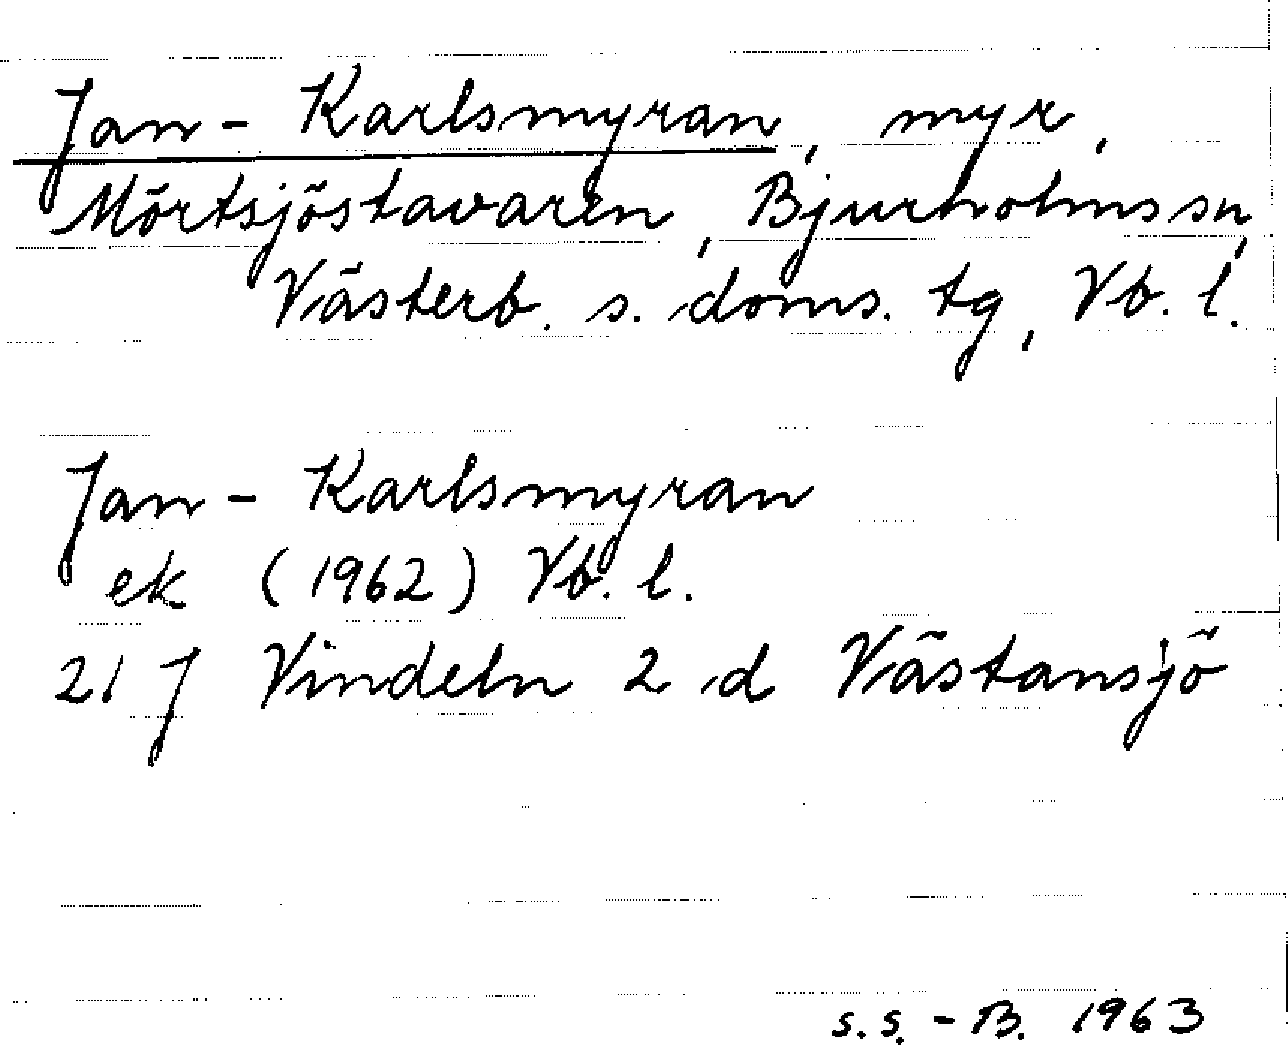 Jan-Karlsmyran, myr,
Mörtsjöstavaren, Bjurholms sn,
Västerb. s. doms. tg, Vb. l.
Jan-Karlsmyran
ek (1962) Vb. l.
21 J Vindeln 2 d Västansjö
s.s.-B. 1963